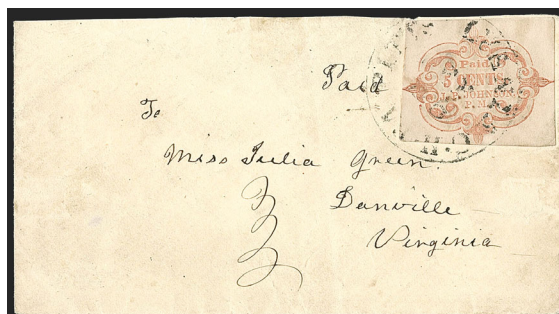 Paid
5 CENTS
J.P. JOHNSON
P.M.
Paid
To
Miss Julia Green
Danville
Virginia